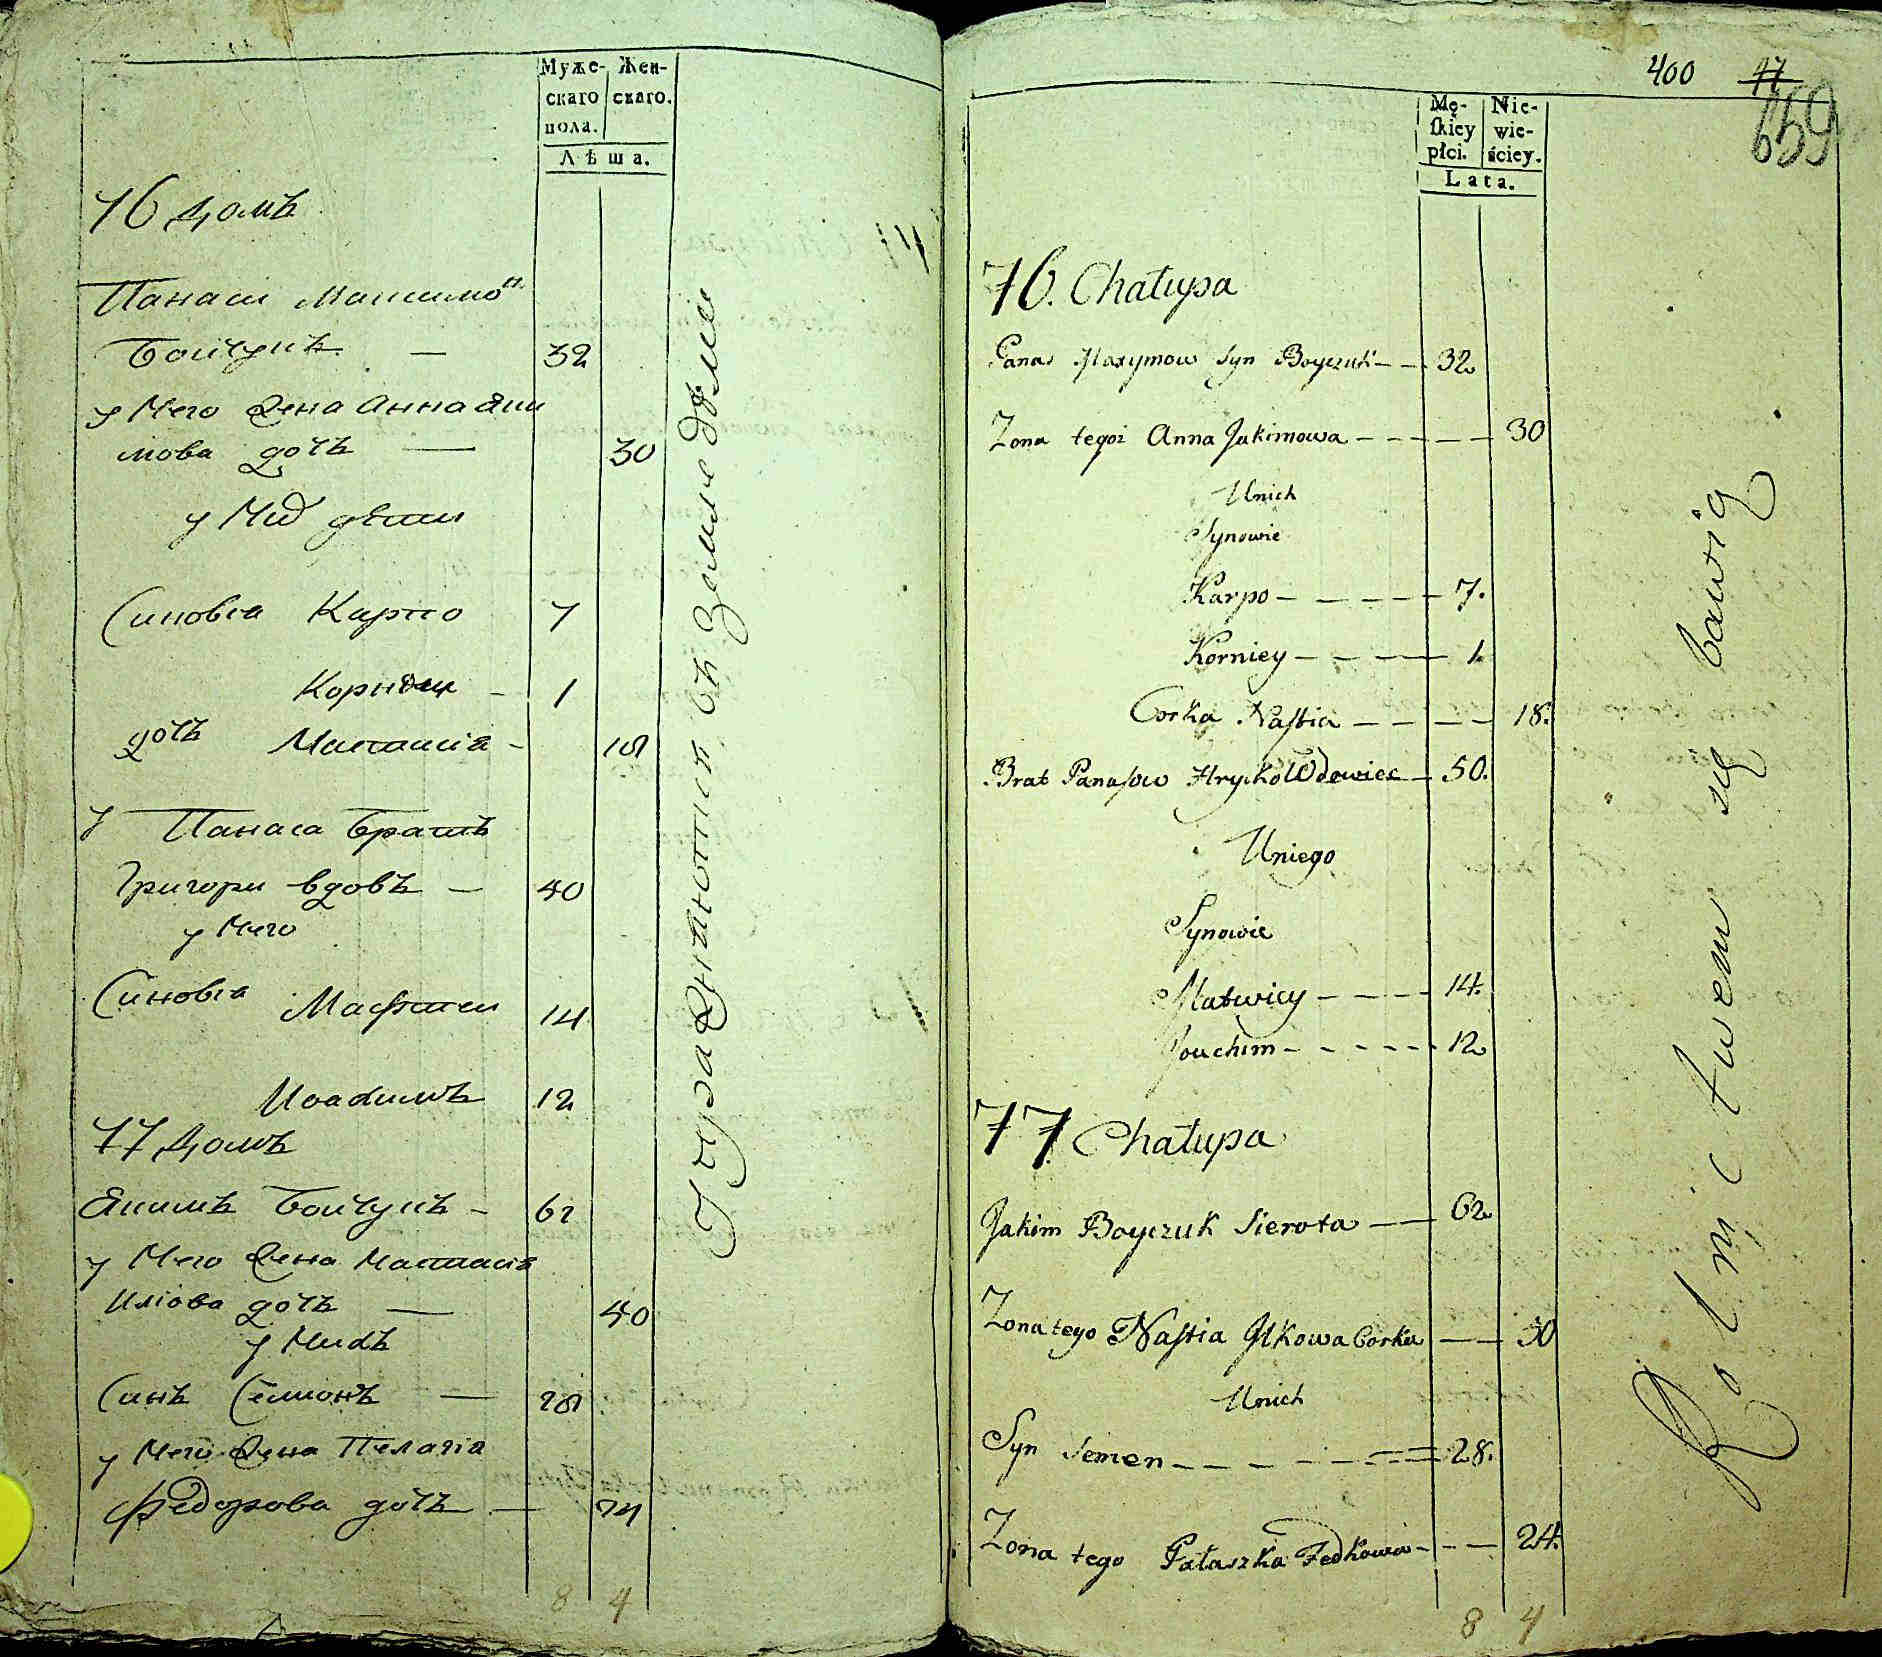 Муже-
скаго
пола.
Жен-
скаго.
Лѣта.
76 домъ
Панаси Максимо
Бойчукъ — 32
у Него жена Анна Яки
мова дочь — 30
у Них дѣти
Синовіа Карпо 7
Корнѣи — 1
дочь Настасіа - 18
у Панаса братъ
Григори вдовъ — 40
у Него
Синовіа Матфеи 14
Иоахимъ 12
77 домъ
Якимъ Бойчукъ - 62
у Него жена Настасіа
Иліова дочь — 40
у Нихъ
Синъ Семионъ — 28
у Него жена Пелагіа
Федорова дочь — 24
8 4
Упражняются въ земледѣлии
400 47
659
Mę-
skiey
płci.
Nie-
wie-
ściey.
Lata.
76. Chałupa
Panas Maxymow Syn Boyczuk — — 32
Zona tegoż Anna Jakimowa — — — — — 30
Unich
Synowie
Karpo — — — — — 7.
Korniey — — — — 1.
Corka Nastia — — — — — 18.
Brat Panasow Hrycko Wdowiec — 50.
Uniego
Synowie
Matwiey — — — — 14.
Jouchim — — — — — 12
77 Chałupa
Jakim Boyczuk Sierota — — 62
Zona tego Nastia Ilkowa Corka — — 50
Unich
Syn Semen — — — — — — 28.
Zona tego Pałaszka Fedkowa — — — 24.
8 4
Rolnictwem się bawią